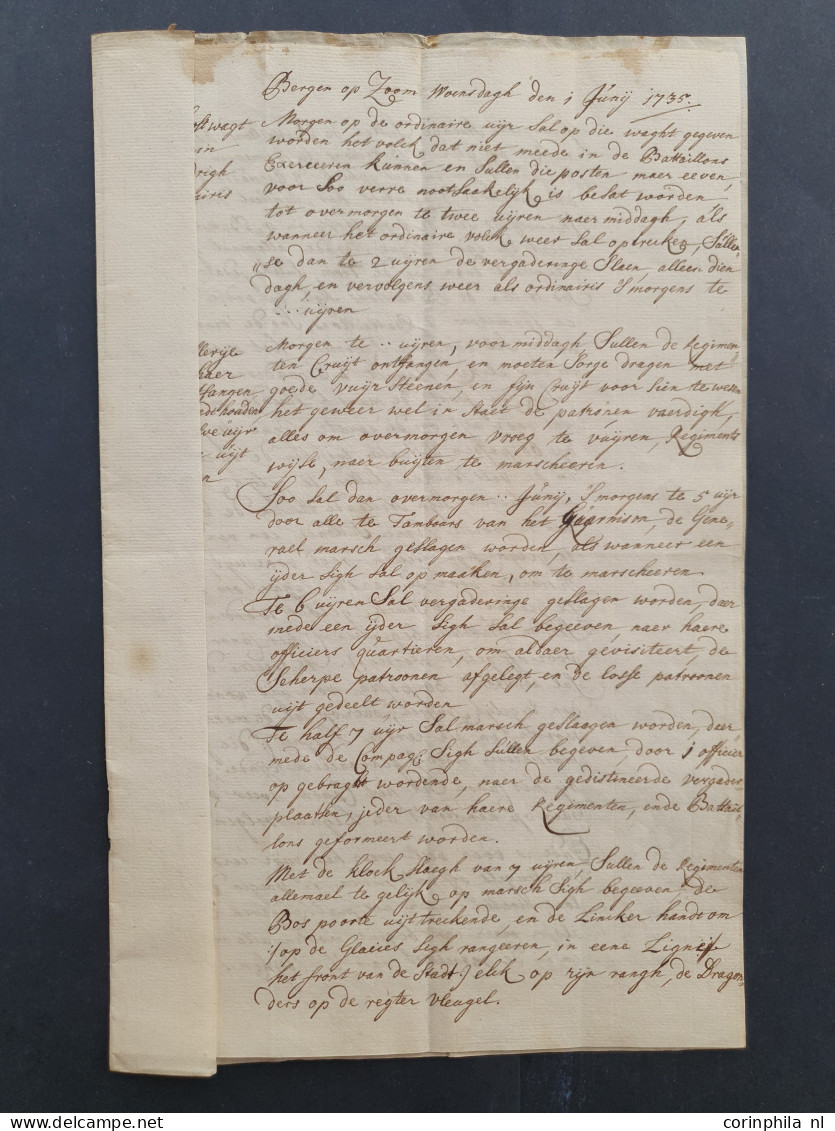 Bergen op Zoom Woensdagh den 1 Junij 1735.
Morgen op de ordinaire uijr Sal op die waght gegeven
worden het volck dat niet meede in de Battaillons
Exerceren kunnen en Sullen die posten maer eeven,
voor Soo verre nootsaekelijk is beset worden
tot overmorgen te twee uijren naer middagh, als
wanneer het ordinaire volck weer Sal optrecken, Sulle
se dan te 2 uijren de vergaderinge Slaen, alleen dien
dagh, en vervolgens weer als ordinairis S'morgens te
.. uijren
Morgen te .. uijren, voor middagh Sullen de Regimen
ten Cruijt ontfangen, en moeten Sorge dragen met
goede vuijr Steenen, en fijn Cruijt voor Sien te wesen
het geweer wel in Staet de patronen vaerdigh,
alles om overmorgen vroeg te vuijren, Regiments
wijse, naer buijten te marscheeren.
Soo Sal dan overmorgen .. Junij, S'morgens te 5 uijr
door alle te Tamboars van het Guarnison, de Gene-
rael marsch geslagen worden, als wanneer een
ijder Sigh Sal op maaken, om te marscheeren
Te 6 uijren Sal vergaderinge geslagen worden, daer
mede een ijder Sigh Sal begeeven, naer haere
officiers quartieren, om aldaer gevisiteert, de
Scherpe patroonen afgelegt, en de losse patroonen
uijt gedeelt worden
Te half 7 uijr Sal marsch geslaagen worden, daer
mede de Compag. Sigh Sullen begeven, door 1 officier
op gebraght wordende, naer de gedistineerde vergader
plaatsen, jeder van haere Regimenten, ende Battail
lons geformeert worden.
Met de klock Slaegh van 7 uijren, Sullen de Regimenten
allemael te gelijk op marsch Sigh begeven de
Bos poorte uijt treckende, en de Lincker handt om
:/ op de Glacies Sigh rangeeren, in eene Lignie
het front van de Stadt :/ elck op zijn rangh, de Dragon
ders op de regter vleugel.
wagt
righ
airis
llerije
haer
fangen
houden
uijr
uijt
corinphila nl